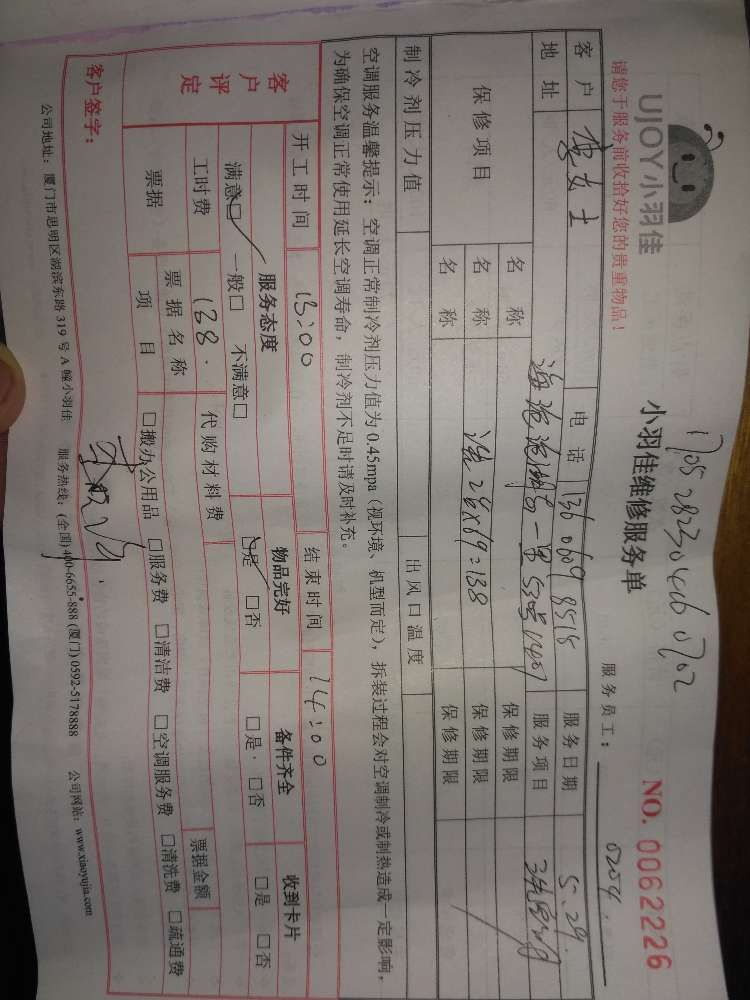 UJOY小羽佳
请您于服务前收拾好您的贵重物品！
小羽佳维修服务单
NO. 0062226
服务员工： 0204
客户 女士 电话 服务日期 5.29
地址 服务项目
保修项目 名称 保修期限
名称 保修期限
名称 保修期限
制冷剂压力值 出风口温度
空调服务温馨提示：空调正常制冷剂压力值为0.45mpa（视环境、机型而定），拆装过程会对空调制冷或制热造成一定影响，
为确保空调正常使用延长空调寿命，制冷剂不足时请及时补充。
开工时间 13:00 结束时间 14:00
客户评定 服务态度 物品完好 备件齐全 收到卡片
满意☑ 一般□ 不满意□ ☑是 □否 □是 □否 □是 □否
工时费 138. 代购材料费 票据金额
票据 票据名称
项目 □搬办公用品 □服务费 □清洁费 □空调服务费 □清洗费 □疏通费
客户签字：
公司地址：厦门市思明区湖滨东路319号A幢小羽佳 服务热线：(全国)400-6655-888 (厦门)0592-5178888 公司网站：www.xiaoyujia.com